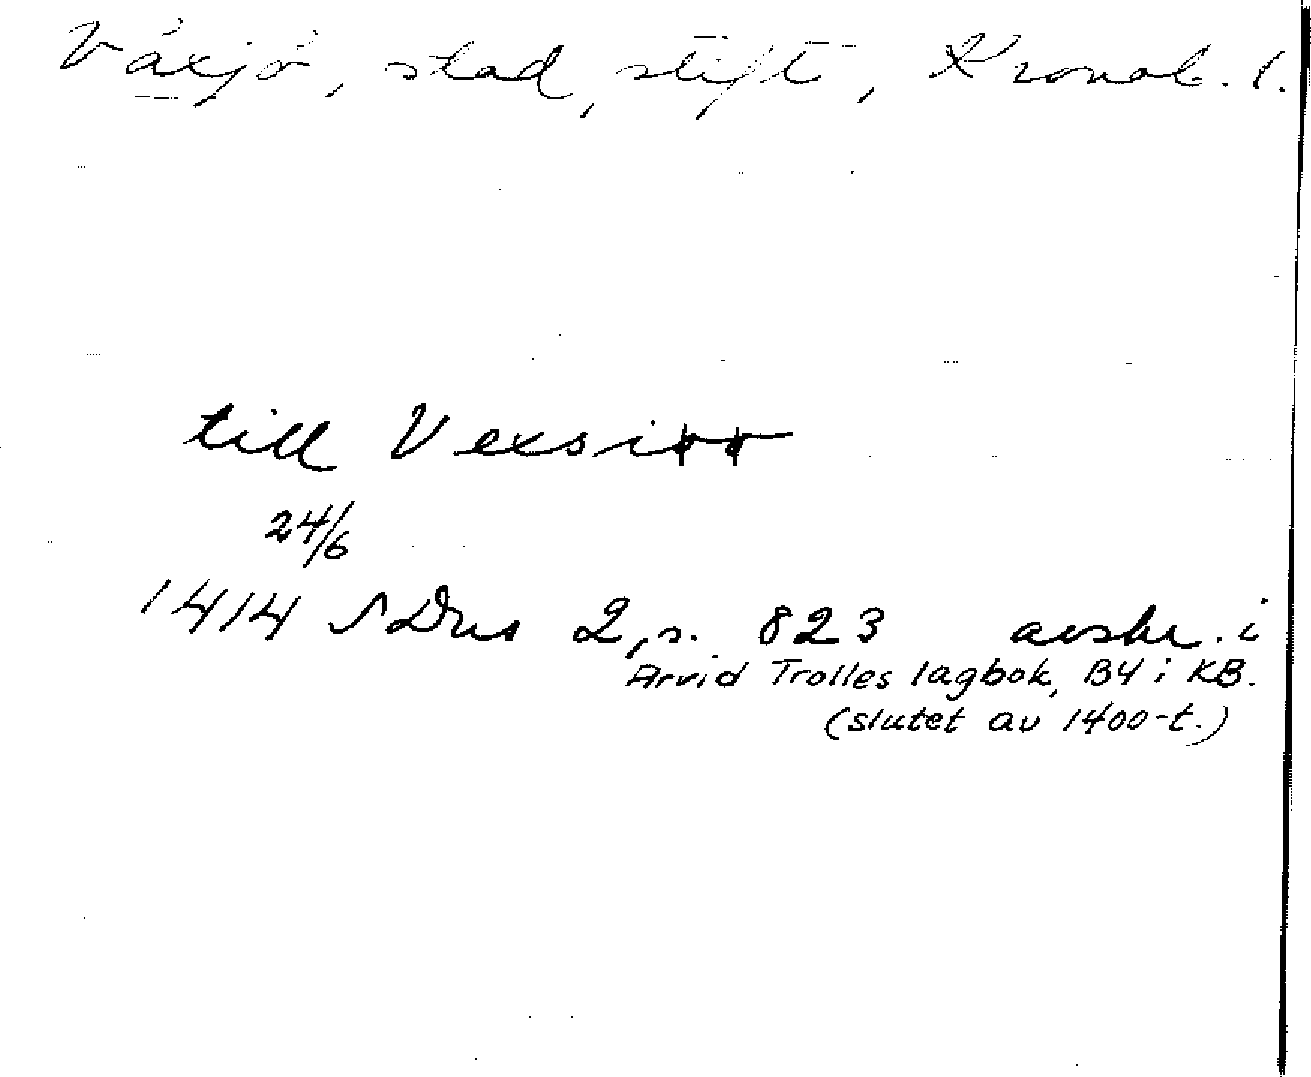 Växjö, stad, stift, Kronob. l.
till Vexsiøø
24/6
1414 SDns 2, s. 823 avskr. i
Arvid Trolles lagbok, B4 i KB.
(slutet av 1400-t.)